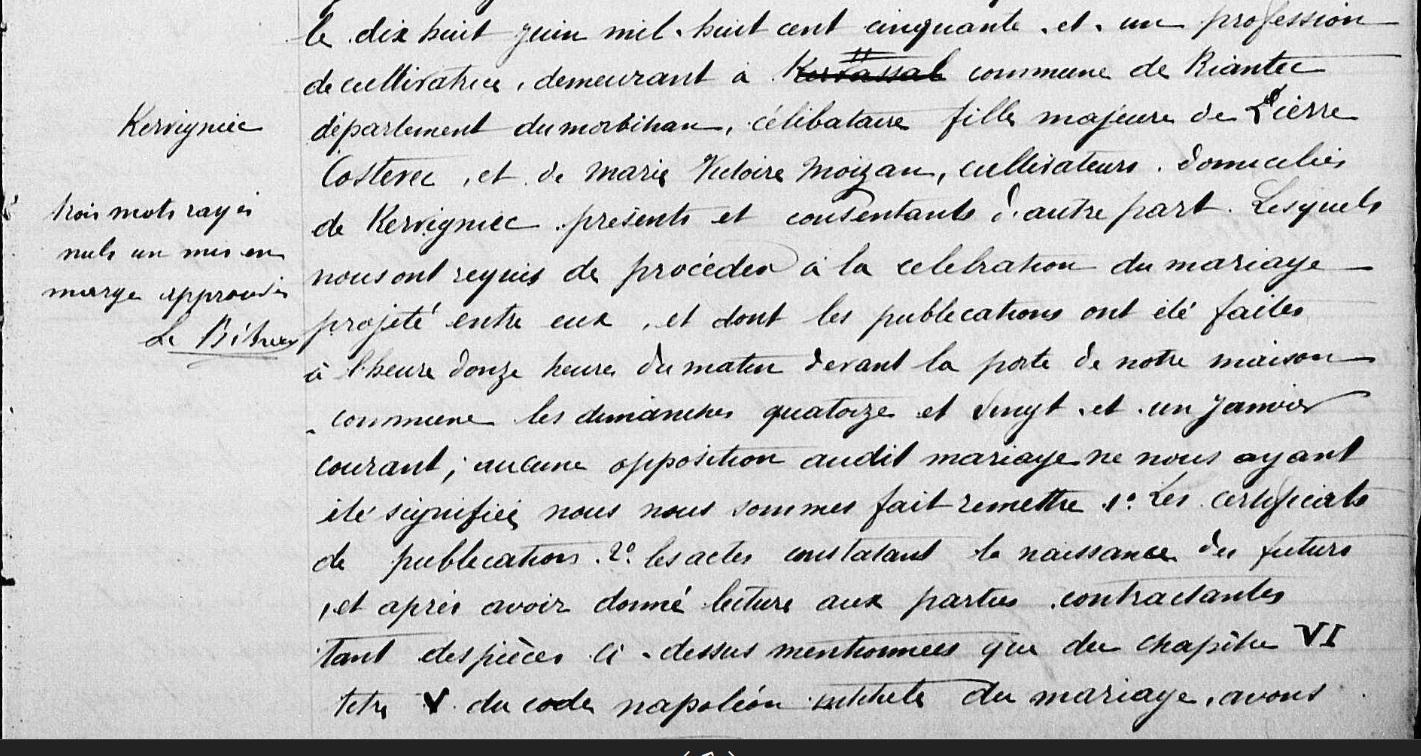 le dix huit juin mil-huit cent cinquante et un profession
de cultivatrice, demeurant à Kervassal commune de Riantec
Kervigniec
département du morbihan, célibataire fille majeure de Pierre
Costevec, et de marie Victoire moizan, cultivateurs domiciliés
trois mots rayés
nuls un mis en
marge approuvés
de Kervigniec présents et consentants d'autre part. Lesquels
nous ont requis de procéder à la celebration du mariage
projeté entre eux, et dont les publications ont été faites
à l'heure d'onze heures du matin devant la porte de notre maison
commune les dimanches quatorze et vingt et un janvier
courant; aucune opposition audit mariage ne nous ayant
été signifiée nous nous sommes fait remettre 1º Les certificats
de publications 2º les actes constatant la naissance des futurs
, et après avoir donné lecture aux parties contractantes
tant des pièces ci-dessus mentionnées que du chapitre VI
titre V du code napoléon intitulé du mariage, avons